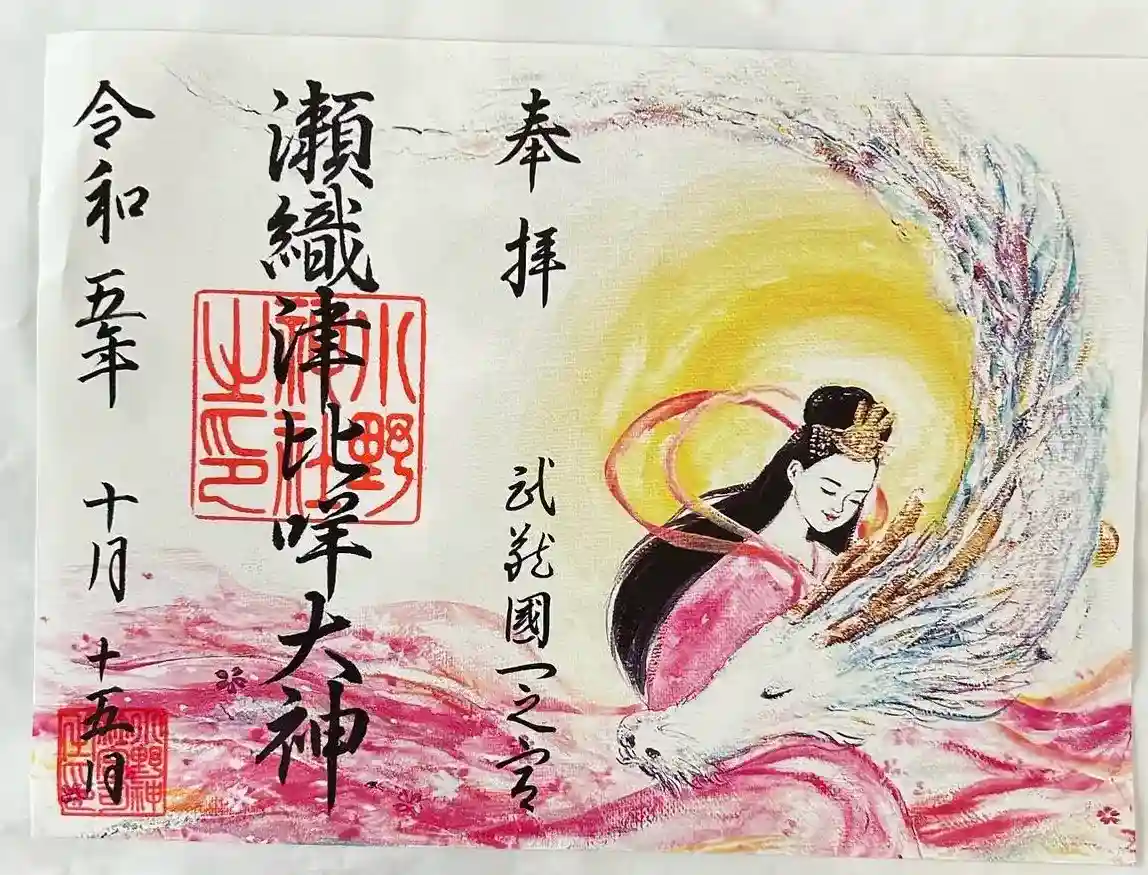 奉拝
武蔵國一之宮
瀬織津比咩大神
小野
神社
之印
令和五年 十月 十五日